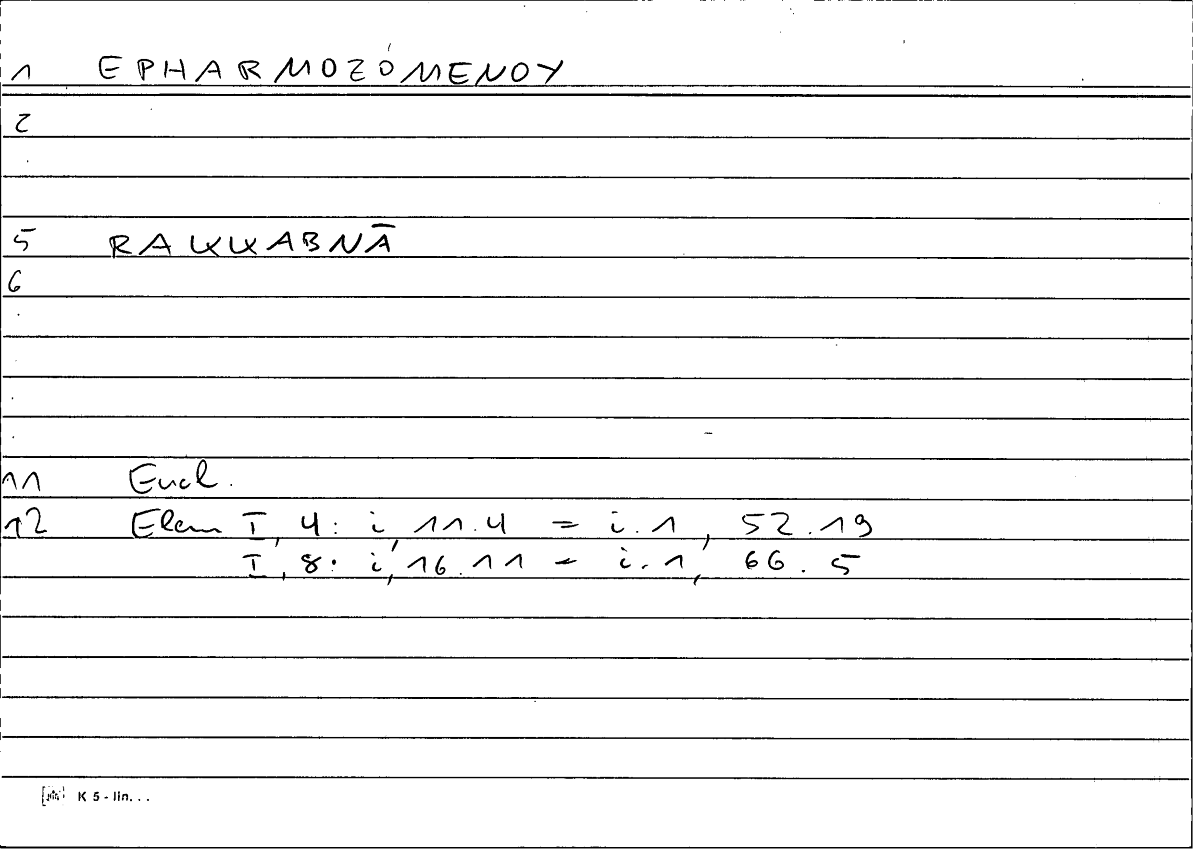 1 EPHARMOZÓMENOY
2
5 RAKKABNĀ
6
11 Eucl.
12 Elem I, 4: i, 11.4 = i.1, 52.19
I, 8: i, 16.11 = i.1, 66.5
K 5 - lin...